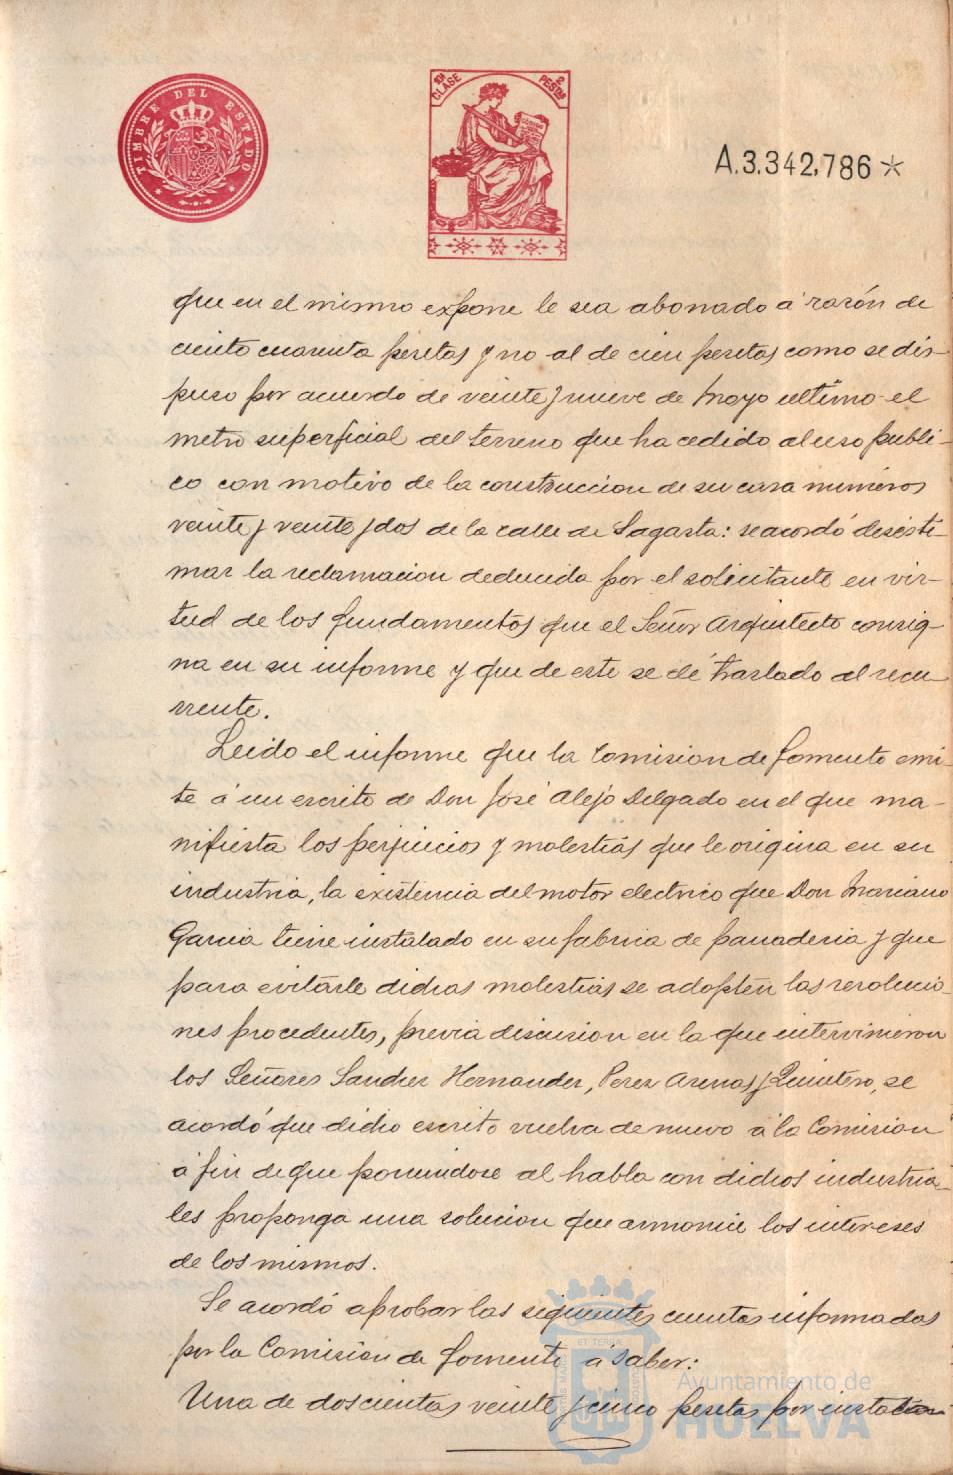 TIMBRE DEL ESTADO
10ª CLASE 2 PESTAS
A.3.342,786 *
que en el mismo expone le sea abonado á razón de
ciento cuarenta pesetas y no al de cien pesetas como se dis-
puso por acuerdo de veinte y nueve de Mayo ultimo el
metro superficial del terreno que ha cedido al uso publi-
co con motivo de la construccion de su casa numeros
veinte y veinte y dos de la calle de Sagasta: se acordó desesti-
mar la reclamacion deducida por el solicitante en vir-
tud de los fundamentos que el Señor Arquitecto consig-
na en su informe y que de este se dé traslado al recu-
rrente.
Leido el informe que la Comision de Fomento emi-
te á un escrito de Don José Alejo Delgado en el que ma-
nifiesta los perjuicios y molestias que le origina en su
industria, la existencia del motor electrico que Don Mariano
Garcia tiene instalado en su fabrica de panaderia y que
para evitarle dichas molestias se adopten las resolucio-
nes procedentes, previa discusion en la que intervinieron
los Señores Sanchez Hernandez, Perez Arenas y Quintero, se
acordó que dicho escrito vuelva de nuevo á la Comision
á fin de que poniendose al habla con dichos industria-
les proponga una solucion que armonice los intereses
de los mismos.
Se acordó aprobar las siguientes cuentas informadas
por la Comision de Fomento á saber:
Una de doscientas veinte y cinco pesetas por
Ayuntamiento de
HUELVA